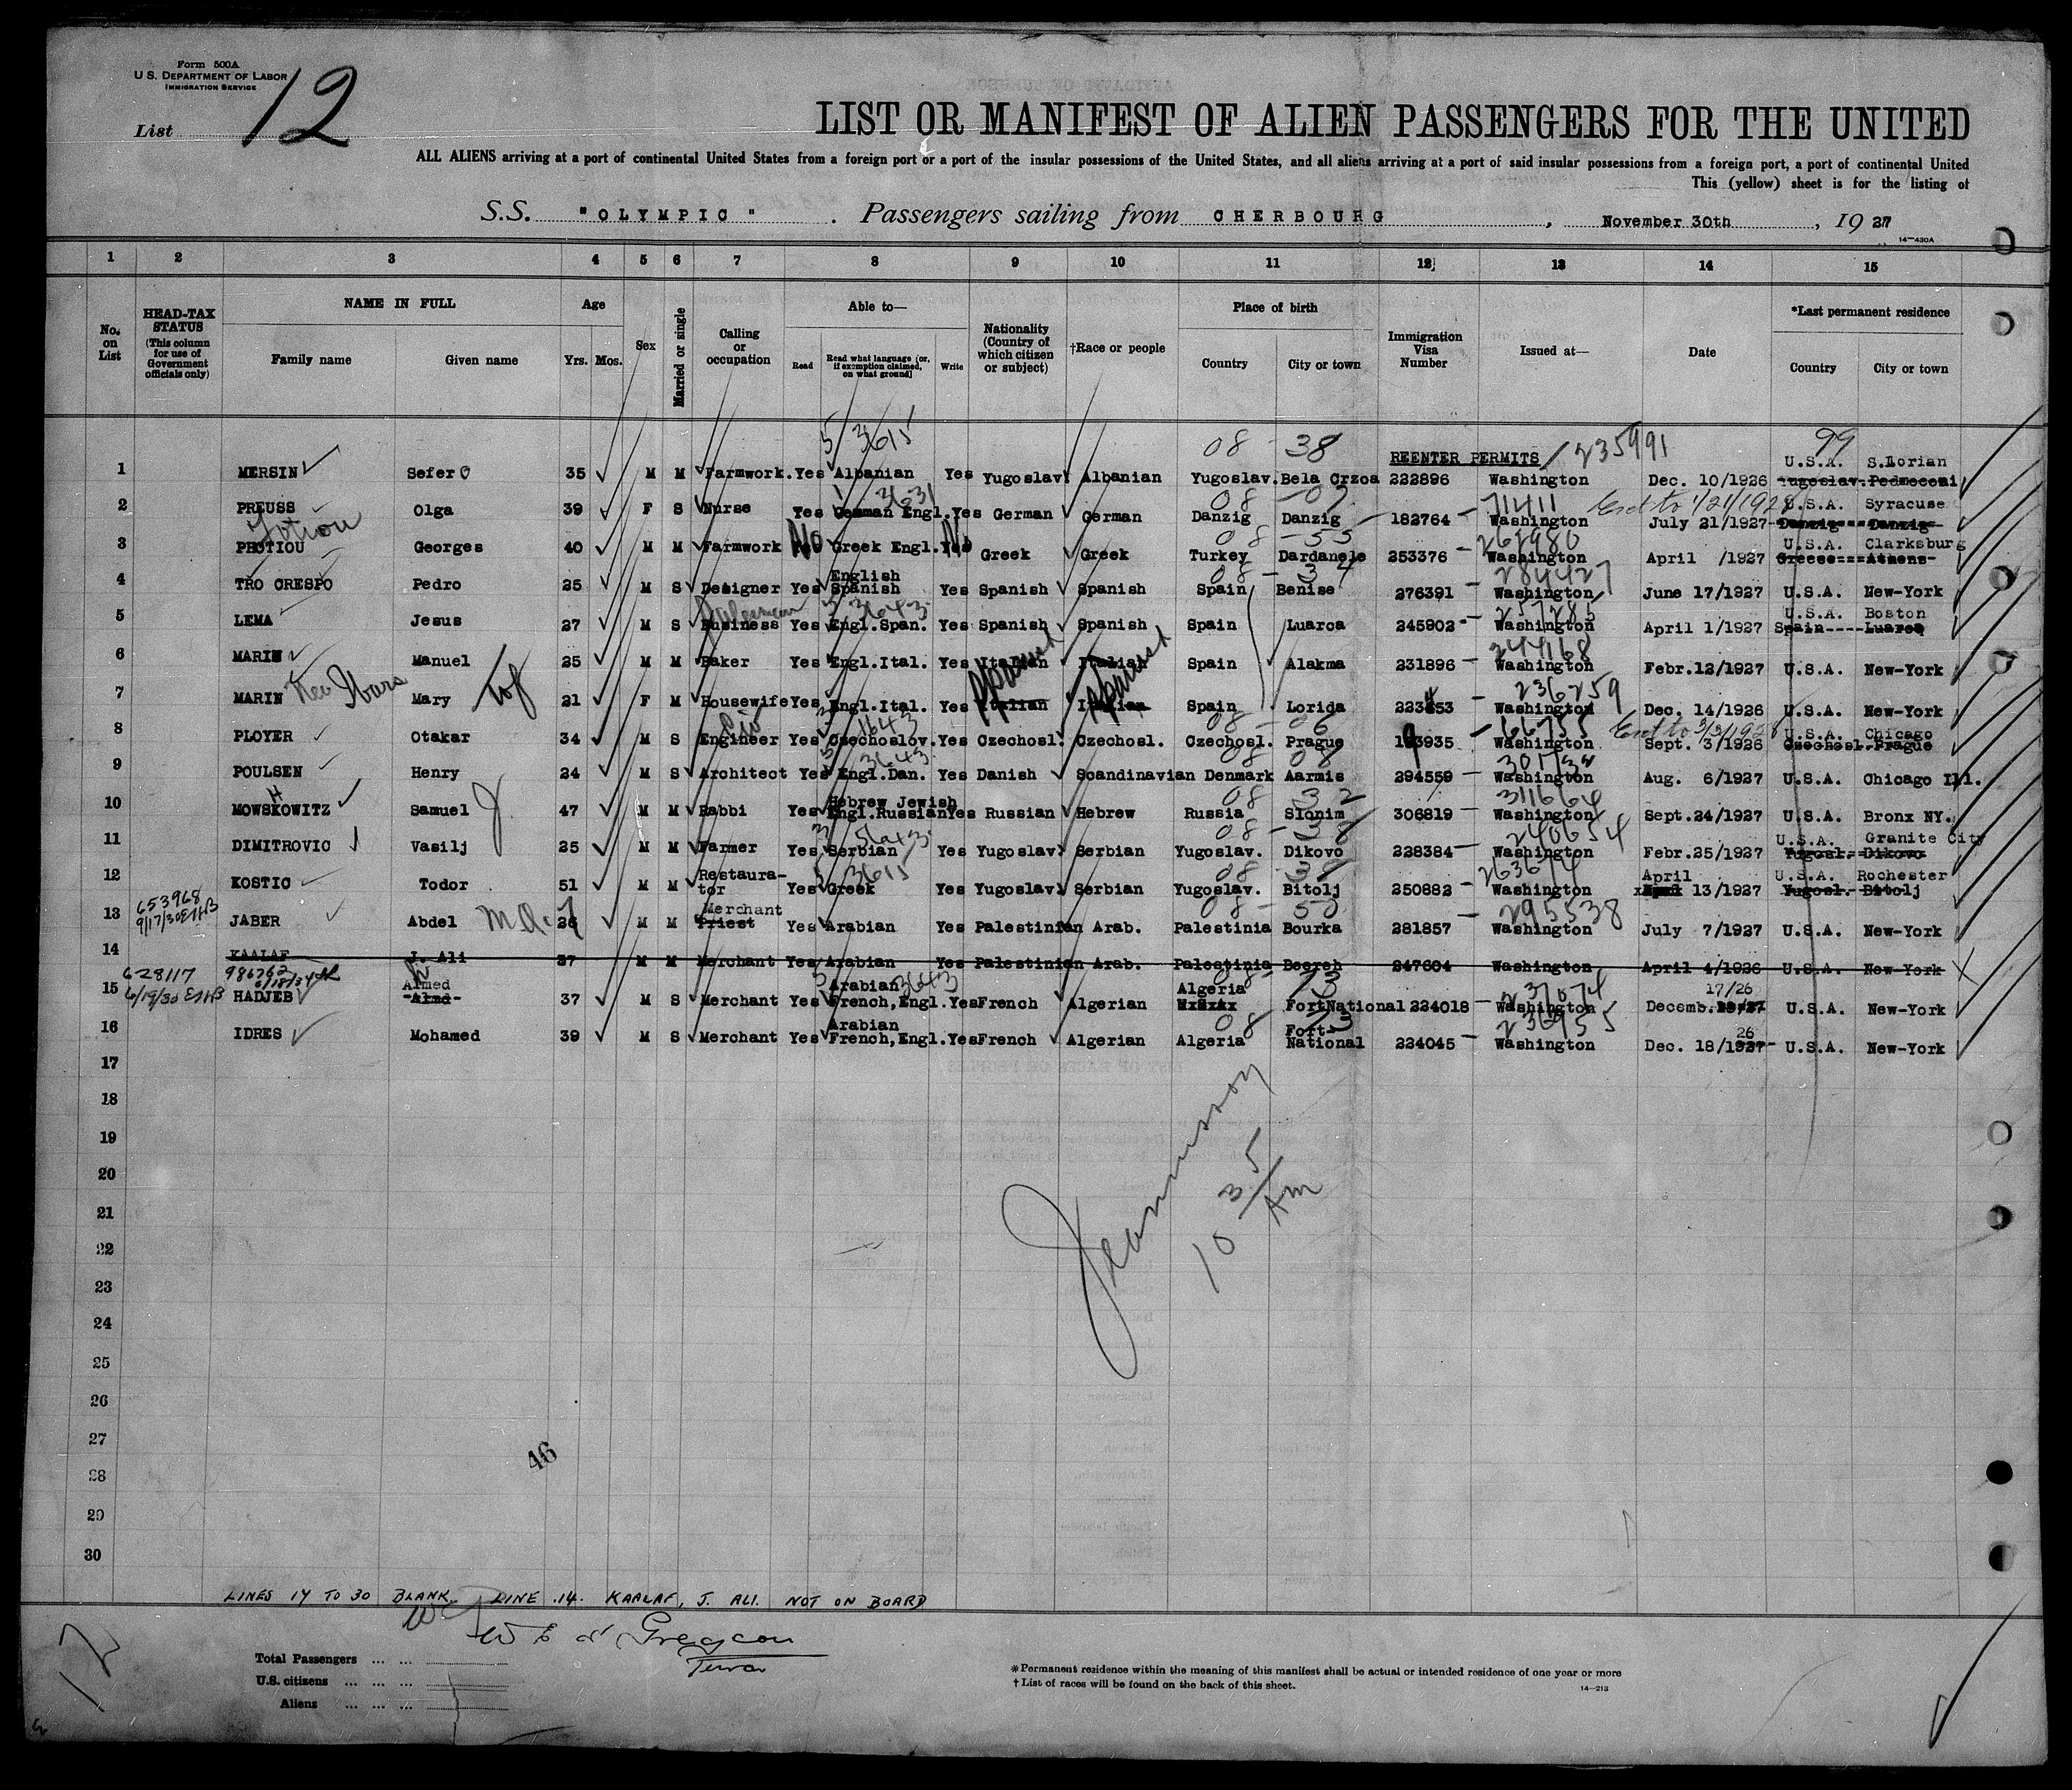 Form 500A
U. S. DEPARTMENT OF LABOR
IMMIGRATION SERVICE
List 12
LIST OR MANIFEST OF ALIEN PASSENGERS FOR THE UNITED
ALL ALIENS arriving at a port of continental United States from a foreign port or a port of the insular possessions of the United States, and all aliens arriving at a port of said insular possessions from a foreign port, a port of continental United
This (yellow) sheet is for the listing of
S.S. "OLYMPIC" . Passengers sailing from CHERBOURG , November 30th , 19 27
14—430A
1 2 3 4 5 6 7 8 9 10 11 12 13 14 15
No. on List
HEAD-TAX STATUS (This column for use of Government officials only)
NAME IN FULL
Family name Given name
Age
Yrs. Mos.
Sex
Married or single
Calling or occupation
Able to—
Read Read what language (or, if exemption claimed, on what ground) Write
Nationality (Country of which citizen or subject)
†Race or people
Place of birth
Country City or town
Immigration Visa Number
Issued at—
Date
*Last permanent residence
Country City or town
5/3615 08 - 38 REENTER PERMITS / 235991 99
U.S.A. S.Dorian
1 MERSIN Sefer 35 M M Farmwork. Yes Albanian Yes Yugoslav. Albanian Yugoslav. Bela Crzoa 222896 Washington Dec. 10/1926 Yugoslav. Pedmeceni
3631 08 - 07 71411 Ext to 1/21/1928 U.S.A. Syracuse
2 PREUSS Olga 39 F S Nurse Yes German Engl. Yes German German Danzig Danzig 182764 Washington July 21/1927 Danzig Danzig
Fotiou No No 08 - 55 262980 U.S.A. Clarksburg
3 PHOTIOU Georges 40 M M Farmwork Greek Engl. Greek Greek Turkey Dardanele 253376 Washington April /1927 Greece Athens
English 08 - 34 284427
4 TRO CRESPO Pedro 25 M S Designer Yes Spanish Yes Spanish Spanish Spain Benise 276391 Washington June 17/1927 U.S.A. New-York
Salesman 3643 257285 U.S.A. Boston
5 LEMA Jesus 27 M S Business Yes Engl.Span. Yes Spanish Spanish Spain Luarca 245902 Washington April 1/1927 Spain Luarca
244168
6 MARIN Manuel 25 M M Baker Yes Engl.Ital. Yes Italian Italian Spain Alakma 231896 Washington Febr.12/1927 U.S.A. New-York
Spanish Spanish 236259
7 MARIN Mary 21 F M Housewife Yes Engl.Ital. Yes Italian Italian Spain Lorida Washington Dec. 14/1926 U.S.A. New-York
Civ 1643 08 - 06 66755 Ext to 3/3/1928 U.S.A. Chicago
8 PLOYER Otakar 34 M S Engineer Yes Czechoslov. Yes Czechosl. Czechosl. Czechosl. Prague 193935 Washington Sept. 3/1926 Czechosl. Prague
3643 08 08 301734
9 POULSEN Henry 24 M S Architect Yes Engl.Dan. Yes Danish Scandinavian Denmark Aarmis 294559 Washington Aug. 6/1927 U.S.A. Chicago Ill.
H Hebrew Jewish 08 32 311664
10 MOWSKOWITZ Samuel 47 M M Rabbi Yes Engl.Russian Yes Russian Hebrew Russia Slonim 306819 Washington Sept.24/1927 U.S.A. Bronx NY.
3643 08 - 38 240654 U.S.A. Granite City
11 DIMITROVIC Vasilj 25 M M Farmer Yes Serbian Yes Yugoslav. Serbian Yugoslav. Dikovo 228384 Washington Febr.25/1927 Yugosl. Dikovo
Restaura- 3615 08 - 38 263614 April U.S.A. Rochester
12 KOSTIC Todor 51 M M tor Yes Greek Yes Yugoslav. Serbian Yugoslav. Bitolj 250882 Washington 13/1927 Yugosl. Bitolj
653968
9/17/30 Merchant 08 - 50 295538
13 JABER Abdel 26 M M Priest Yes Arabian Yes Palestinian Arab. Palestinia Bourka 281857 Washington July 7/1927 U.S.A. New-York
14 KAALAF J. Ali 37 M M Merchant Yes Arabian Yes Palestinian Arab. Palestinia Beereh 247604 Washington April 4/1926 U.S.A. New-York X
628117 986762
6/19/30 6/18/34 Ahmed Arabian 3643 Algeria 08 - 73 237074 17/26
15 HADJEB Akmd 37 M S Merchant Yes French,Engl. Yes French Algerian FortNational 224018 Washington Decemb. U.S.A. New-York
Arabian 08 73 Fort- 236955 26
16 IDRES Mohamed 39 M S Merchant Yes French,Engl. Yes French Algerian Algeria National 224045 Washington Dec. 18/1927 U.S.A. New-York
17
18
19
20
21
22
23
24
25
26
27
28
29
30
10 35 AM
46
LINES 17 TO 30 BLANK. LINE .14. KAALAF, J. ALI. NOT ON BOARD
12
Total Passengers ... ...
U.S. citizens ... ... ...
Aliens ... ... ...
*Permanent residence within the meaning of this manifest shall be actual or intended residence of one year or more
† List of races will be found on the back of this sheet.
14—213